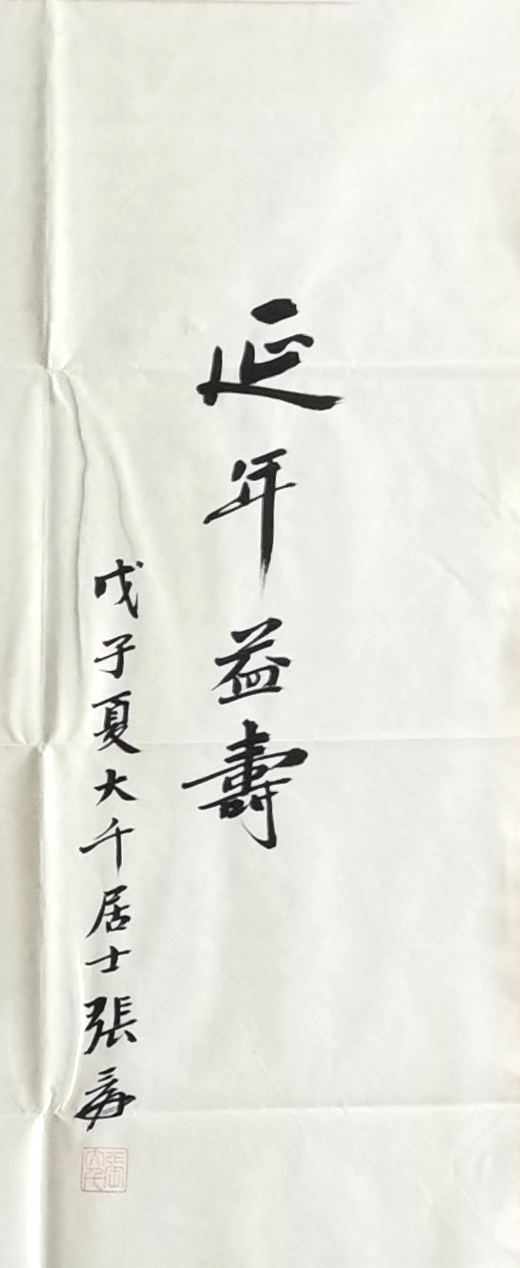 延年益壽
戊子夏大千居士張爰